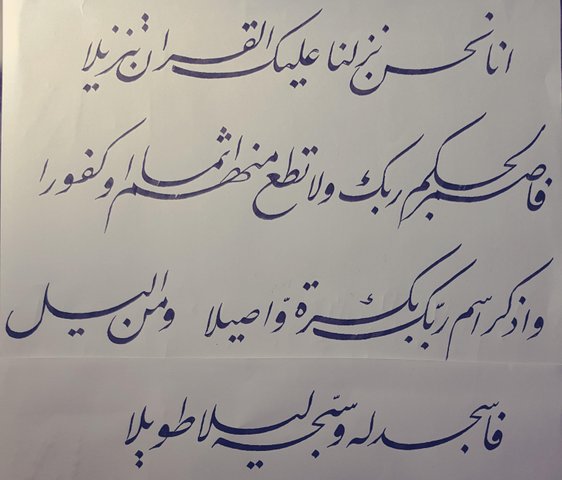 انا نحن نزلنا علیک القران تنزیلا
فاصبر لحکم ربک ولا تطع منهم اثما او کفورا
واذکر اسم ربّک بکرة وّاصیلا ومن الیل
فاسجد له وسّبحه لیلا طویلا